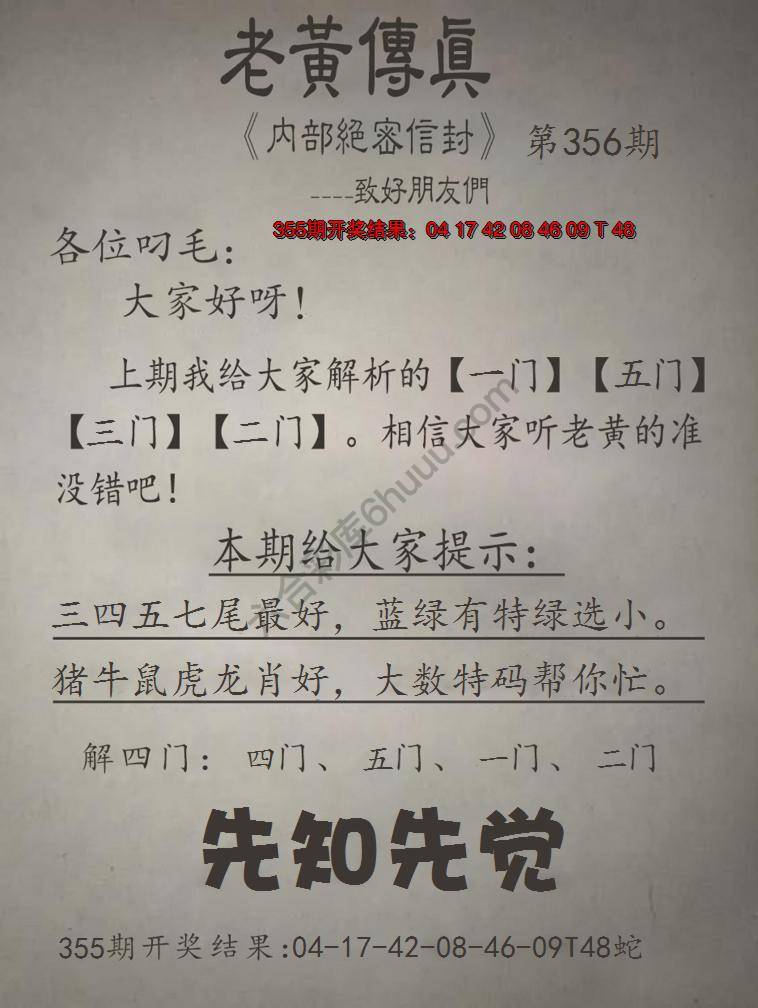 老黃傳真
《内部絕密信封》 第356期
----致好朋友們
355期开奖结果：04 17 42 08 46 09 T 48
各位叼毛：
大家好呀！
上期我给大家解析的【一门】【五门】
【三门】【二门】。相信大家听老黄的准
没错吧！
六合彩库6huuu.com
本期给大家提示：
三四五七尾最好，蓝绿有特绿选小。
猪牛鼠虎龙肖好，大数特码帮你忙。
解四门： 四门、 五门、 一门、 二门
先知先觉
355期开奖结果:04-17-42-08-46-09T48蛇